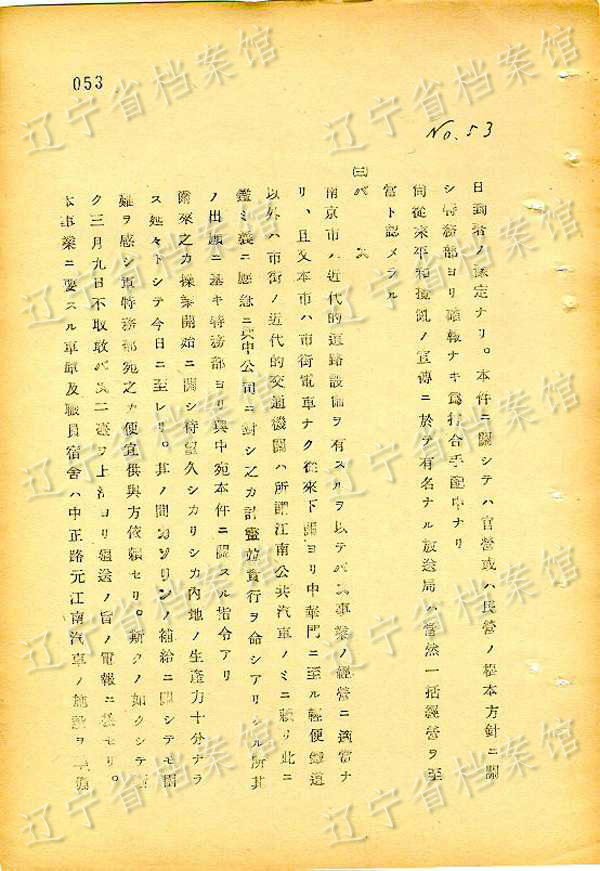 053
No. 53
日到着ノ豫定ナリ。本件ニ關シテハ官營或ハ民營ノ根本方針ニ關
シ特務部ヨリ確報ナキ爲打合手配中ナリ
尙從來平和攪亂ノ宣傳ニ於テ有名ナル放送局ハ當然一括經營ヲ至
當ト認メラル
㈢バス
南京市ハ近代的道路設備ヲ有スルヲ以テバス事業ノ經營ニ適當ナ
リ、且又本市ハ市街電車ナク從來下關ヨリ中華門ニ至ル輕便鐵道
以外ハ市街ノ近代的交通機關ハ所謂江南公共汽車ノミニ賴リ此ニ
鑑ミ曩ニ應急ニ興中公司ニ對シ之カ計畫竝實行ヲ命シアリシ所其
ノ出願ニ基キ特務部ヨリ興中宛本件ニ關スル指令アリ
爾來之カ操業開始ニ關シ待望久シカリシカ內地ノ生產力十分ナラ
ス延々トシテ今日ニ至レリ。其ノ間ガソリンノ補給ニ關シテモ困
難ヲ感シ軍特務部宛之カ便宜供與方依賴セリ。斯クノ如クシテ
ク三月九日不取敢バス二臺ヲ上海ヨリ迴送ノ旨ノ電報ニ接セリ。
本事業ニ要スル車庫及職員宿舍ハ中正路元江南汽車ノ施設ヲ
辽宁省档案馆
辽宁省档案馆
辽宁省档案馆
辽宁省档案馆
辽宁省档案馆
辽宁省档案馆
辽宁省档案馆
辽宁省档案馆